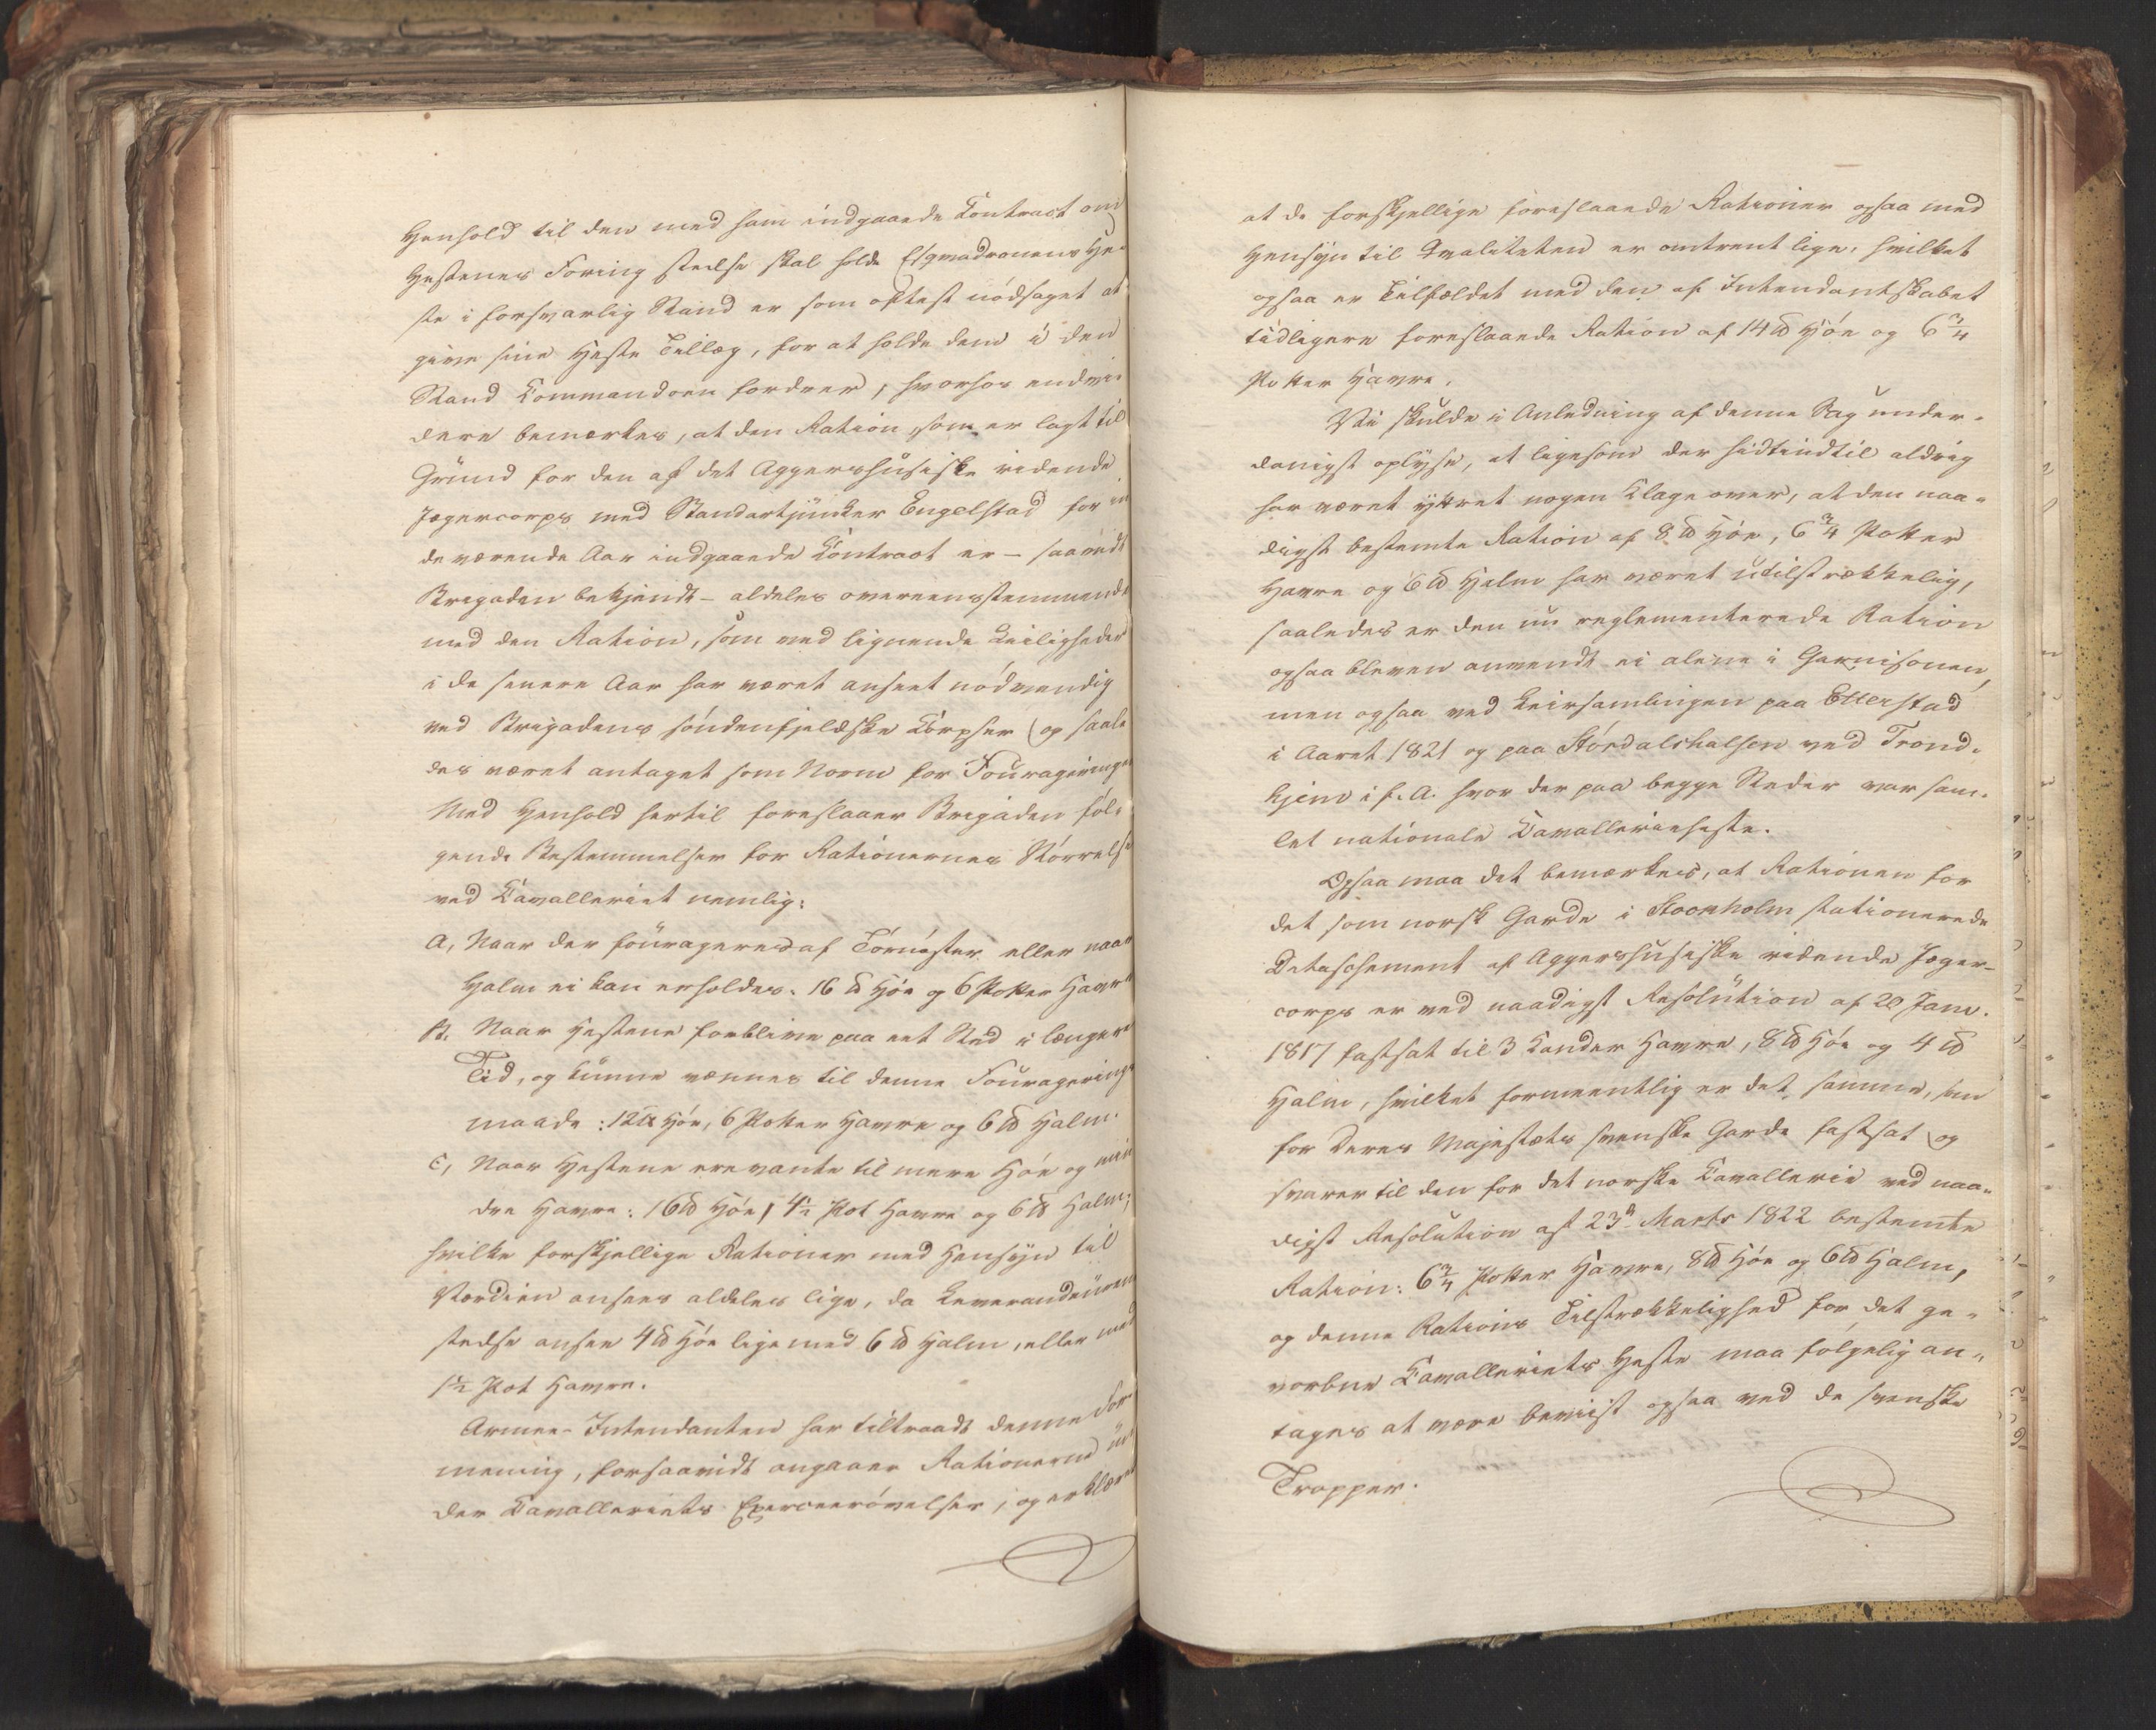 Henhold til den med ham indgaaede Contract om
Hestenes Foring stedse skal holde Esqvadronens He-
ste i forsvarlig Stand er som oftest nødsaget at
give sine Heste Tillæg, for at holde dem i den
Stand Commandoen fordrer, hvorhos endvi-
dere bemærkes, at den Ration, som er lagt til
Grund for den af det Aggershusiske ridende
Jægercorps med Standartjunker Engelstad for in
deværende Aar indgaaede Contract er - saavidt
Brigaden bekjendt - aldeles overeensstemmende
med den Ration, som ved lignende Leiligheder
i de senere Aar har været anseet nødvendig
ved Brigadens søndenfjeldske Corpser (og saale
des været antaget som Norm for Fourageringen
Med Henhold hertil foreslaaer Brigaden føl-
gende Bestemmelser for Rationernes Størrelse
ved Cavalleriet nemlig:
A, Naar der fourageres af Tornister eller naar
Halm ei kan erholdes: 16 ℔ Høe og 6 Potter Havre
B. Naar Hestene forblive paa eet Sted i længere
Tid, og kunne vænnes til denne Fouragerings
maade: 12 ℔ Høe, 6 Potter Havre og 6 ℔ Halm.
C, Naar Hestene ere vante til mere Høe og min
dre Havre: 16 ℔ Høe, 4½ Pot Havre og 6 ℔ Halm;
hvilke forskjellige Rationer med Hensyn til
Værdien ansees aldeles lige, da Leverandeuren
stedse ansee 4 ℔ Høe lige med 6 ℔ Halm, eller med
1½ Pot Havre.
Armee-Intendanten har tiltraadt denne For
mening, forsaavidt angaaer Rationerne un
der Cavalleriets Exerceerøvelser, og erklæret
at de forskjellige foreslaaede Rationer ogsaa med
Hensyn til Qvaliteten er omtrent lige, hvilket
ogsaa er Tilfældet med den af Intendantskabet
tidligere foreslaaede Ration af 14 ℔ Høe og 6¾
Potter Havre.
Vi skulde i Anledning af denne Sag under-
danigst oplyse, at ligesom der hidtindtil aldrig
har været yttret nogen Klage over, at den naa-
digst bestemte Ration af 8 ℔ Høe, 6¾ Potter
Havre og 6 ℔ Halm har været utilstrækkelig,
saaledes er den nu reglementerede Ration
ogsaa bleven anvendt ei alene i Garnisonen,
men ogsaa ved Leirsamlingen paa Etterstad
i Aaret 1821 og paa Stördalshalsen ved Trond-
hjem i f. A. hvor der paa begge Steder var sam-
let nationale Cavalleriheste.
Ogsaa maa det bemærkes, at Rationen for
det som norsk Garde i Stockholm stationerede
Detaschement af Aggershusiske ridende Jæger-
corps er ved naadigst Resolution af 20 Janv.
1817 fastsat til 3 Kander Havre, 8 ℔ Høe og 4 ℔
Halm, hvilket formeentlig er det samme, som
for Deres Majestæts svenske Garde fastsat og
svarer til den for det norske Cavallerie ved naa-
digst Resolution af 23de Marts 1822 bestemte
Ration: 6¾ Potter Havre, 8 ℔ Høe og 6 ℔ Halm,
og denne Rations Tilstrækkelighed for det ge-
vorbne Cavalleriets Heste maa følgelig an-
tages at være beviist ogsaa ved de svenske
Tropper.